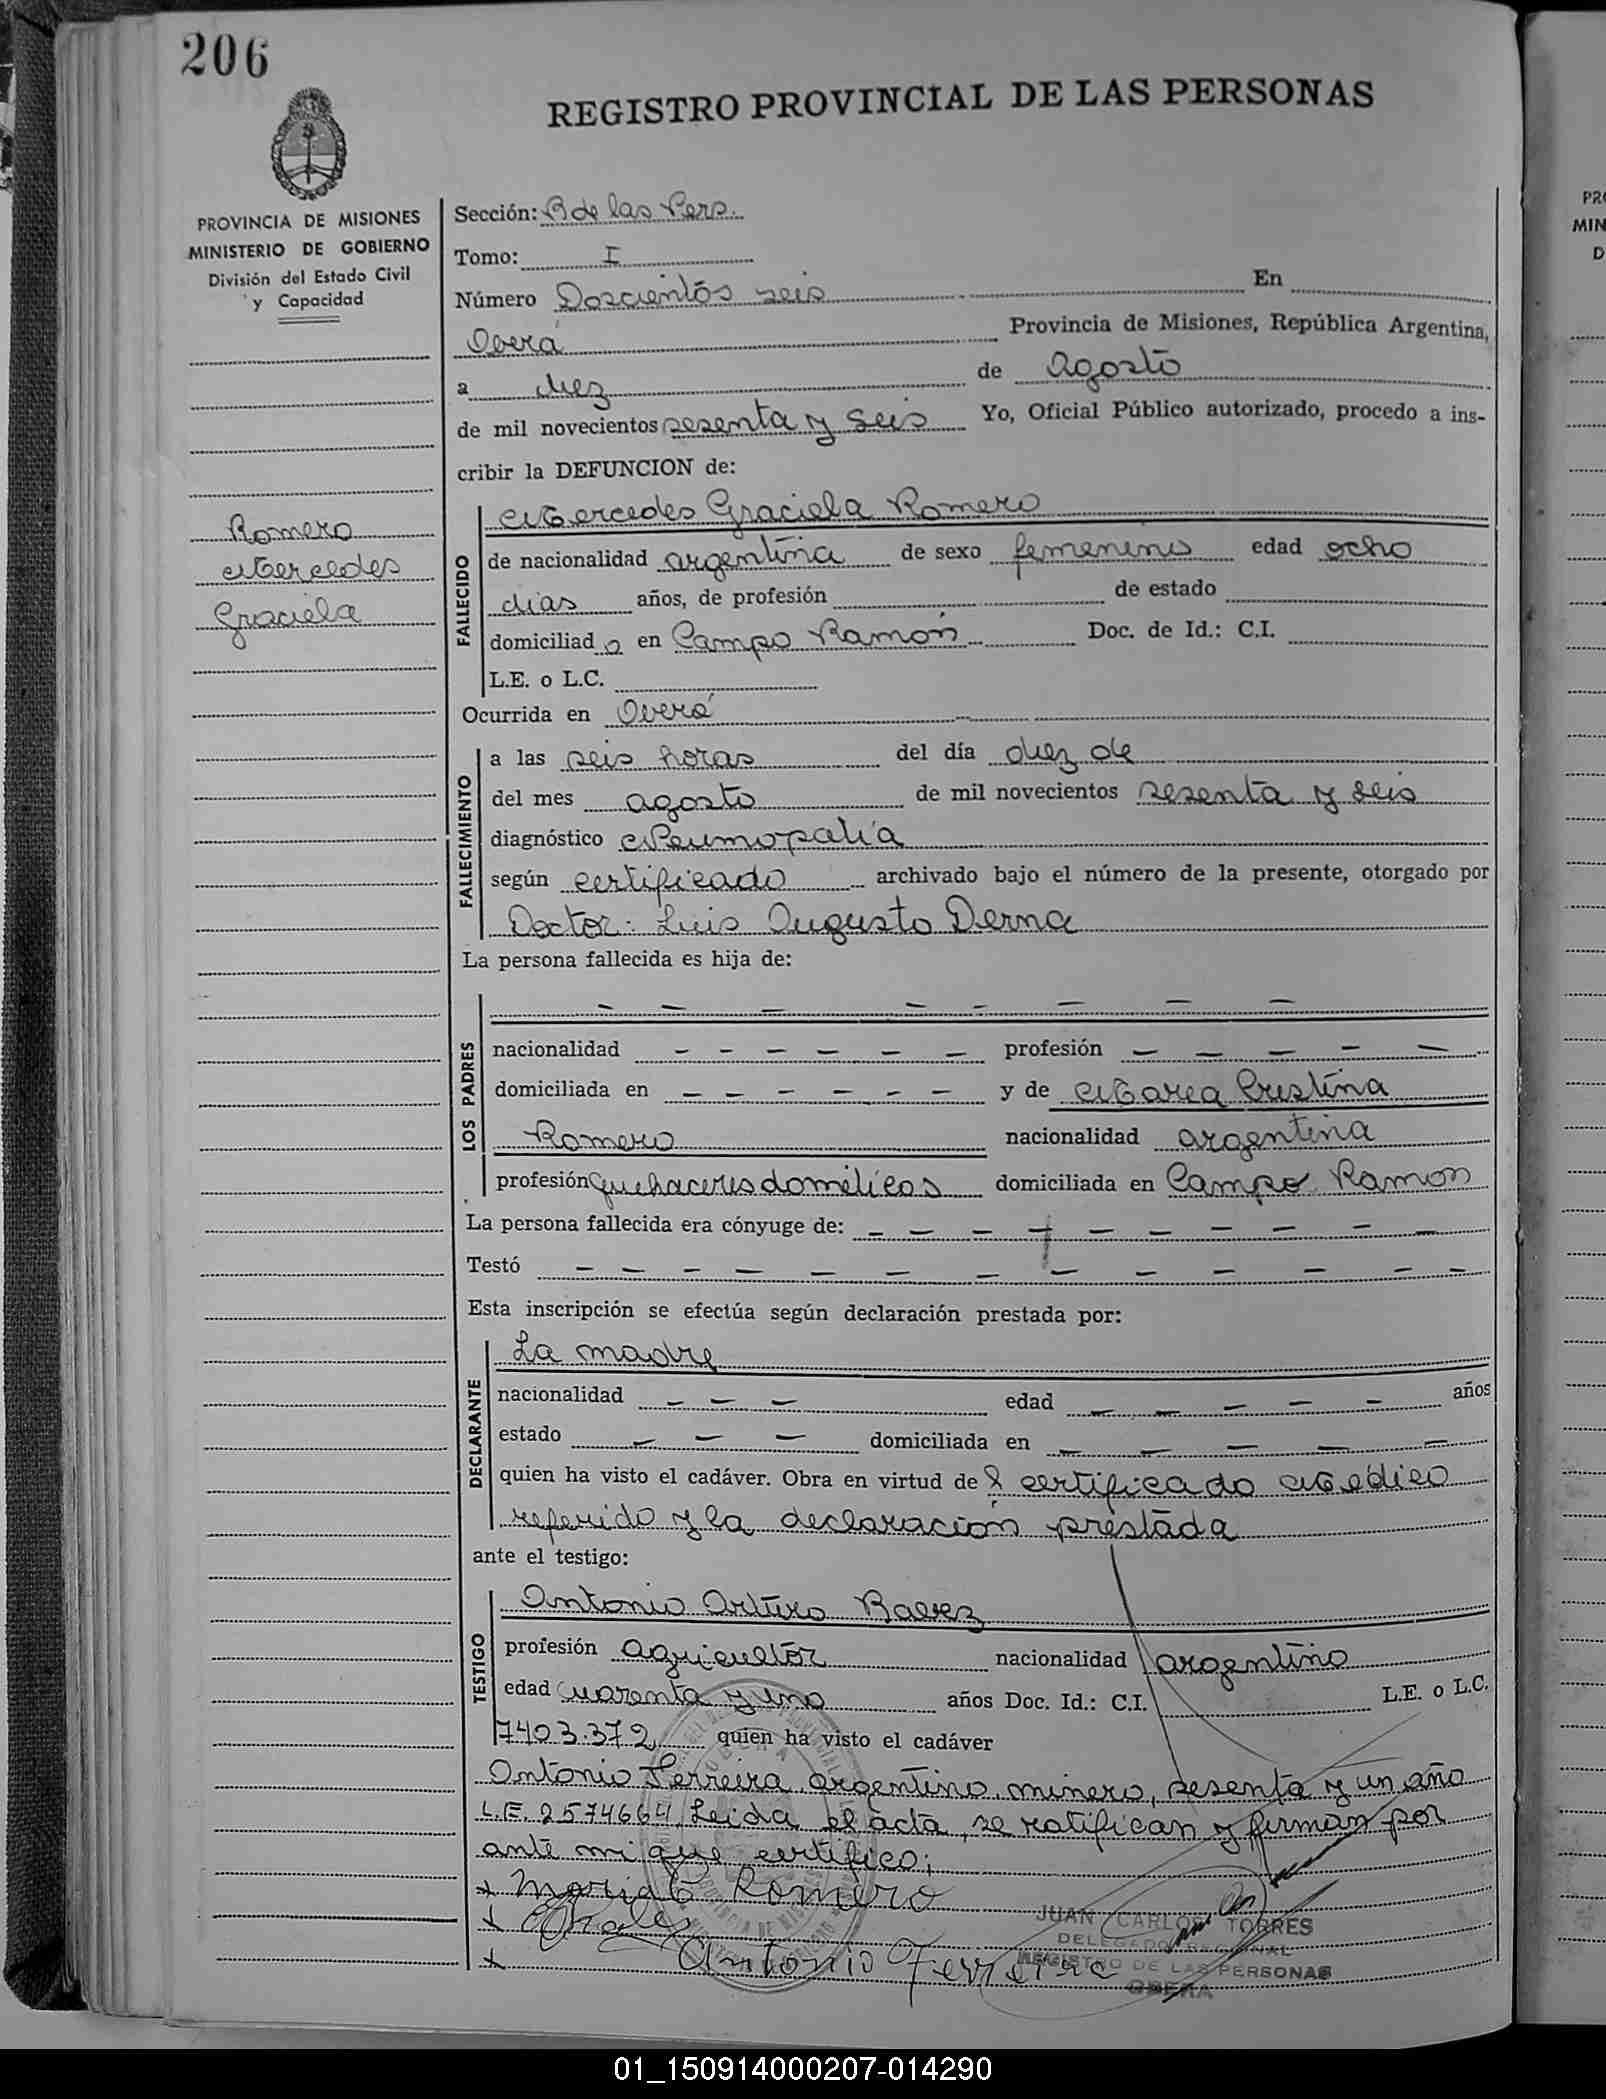 206
REGISTRO PROVINCIAL DE LAS PERSONAS
PROVINCIA DE MISIONES
MINISTERIO DE GOBIERNO
División del Estado Civil
y Capacidad
Romero
Mercedes
Graciela
Sección: R de las Pers.
Tomo: I
Número Doscientos seis En
Oberá Provincia de Misiones, República Argentina,
a diez de Agosto
de mil novecientos sesenta y seis Yo, Oficial Público autorizado, procedo a ins-
cribir la DEFUNCION de:
FALLECIDO
Mercedes Graciela Romero
de nacionalidad argentina de sexo femenino edad ocho
dias años, de profesión de estado
domiciliad o en Campo Ramón Doc. de Id.: C.I.
L.E. o L.C.
Ocurrida en Oberá
FALLECIMIENTO
a las seis horas del día diez de
del mes agosto de mil novecientos sesenta y seis
diagnóstico Neumopatía
según certificado archivado bajo el número de la presente, otorgado por
Doctor: Luis Augusto Derna
La persona fallecida es hija de:
LOS PADRES
- - - - - - - -
nacionalidad - - - - - - profesión - - - - -
domiciliada en - - - - - - y de Maria Cristina
Romero nacionalidad argentina
profesión quehaceres dométicos domiciliada en Campo Ramon
La persona fallecida era cónyuge de: - - - - - - - - - -
Testó - - - - - - - - - - - - -
Esta inscripción se efectúa según declaración prestada por:
DECLARANTE
La madre
nacionalidad - - - edad - - - - - años
estado - - - domiciliada en - - - - -
quien ha visto el cadáver. Obra en virtud de l certificado Médico
referido y la declaración prestada
ante el testigo:
TESTIGO
Antonio Arturo Baez
profesión agricultor nacionalidad argentino
edad cuarenta y uno años Doc. Id.: C.I. L.E. o L.C.
7403.372 quien ha visto el cadáver
Antonio Ferreira argentino, minero, sesenta y un año
L.E. 2574664 Leida el acta, se ratifican y firman por
ante mi que certifico;
x Maria C Romero
x
x Antonio Ferreira
JUAN CARLOS TORRES
DELEGADO REGIONAL
REGISTRO DE LAS PERSONAS
OBERA
01_150914000207-014290